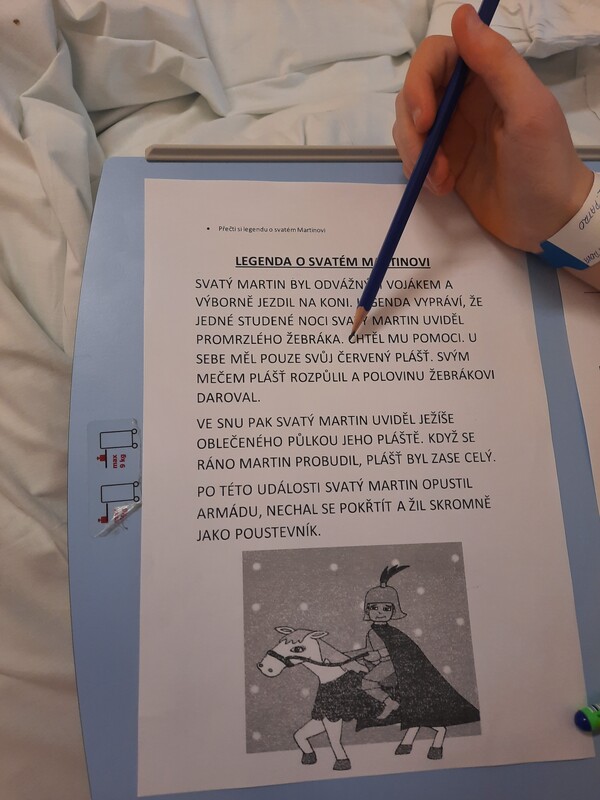 • Přečti si legendu o svatém Martinovi
LEGENDA O SVATÉM MARTINOVI
SVATÝ MARTIN BYL ODVÁŽNÝM VOJÁKEM A
VÝBORNĚ JEZDIL NA KONI. LEGENDA VYPRÁVÍ, ŽE
JEDNÉ STUDENÉ NOCI SVATÝ MARTIN UVIDĚL
PROMRZLÉHO ŽEBRÁKA. CHTĚL MU POMOCI. U
SEBE MĚL POUZE SVŮJ ČERVENÝ PLÁŠŤ. SVÝM
MEČEM PLÁŠŤ ROZPŮLIL A POLOVINU ŽEBRÁKOVI
DAROVAL.
VE SNU PAK SVATÝ MARTIN UVIDĚL JEŽÍŠE
OBLEČENÉHO PŮLKOU JEHO PLÁŠTĚ. KDYŽ SE
RÁNO MARTIN PROBUDIL, PLÁŠŤ BYL ZASE CELÝ.
PO TÉTO UDÁLOSTI SVATÝ MARTIN OPUSTIL
ARMÁDU, NECHAL SE POKŘTÍT A ŽIL SKROMNĚ
JAKO POUSTEVNÍK.
max
6 kg